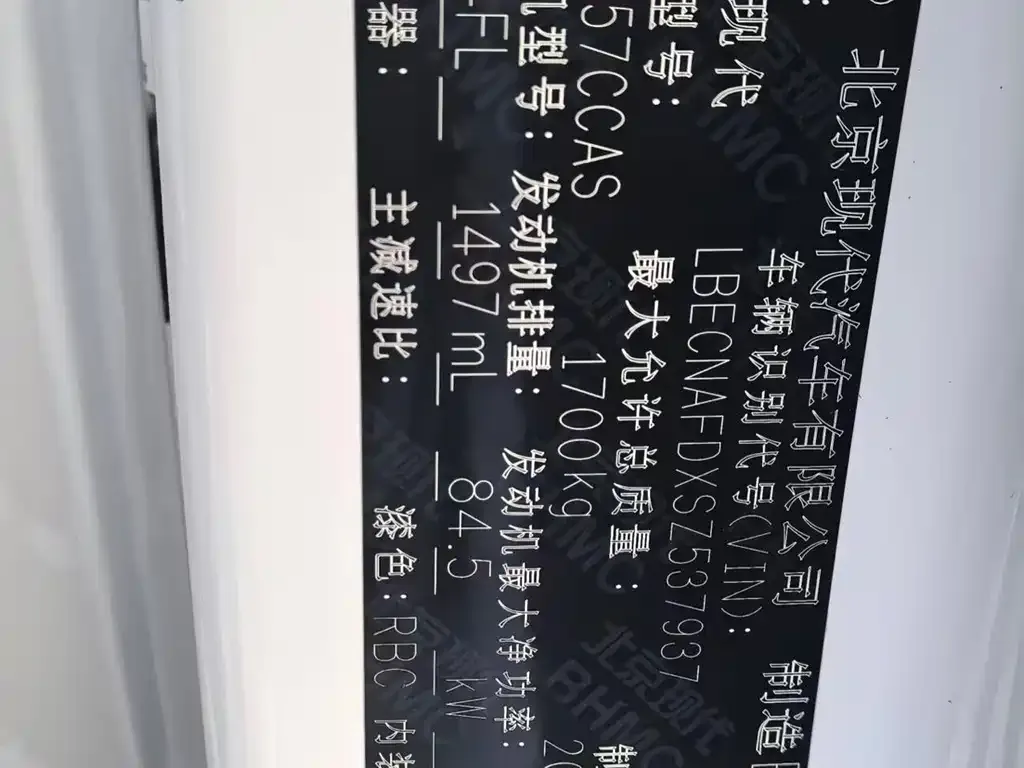 北京现代汽车有限公司 制造
现代
车辆识别代号(VIN):
LBECNAFDXSZ537937
型号: 最大允许总质量:
57CCAS 1700kg
机型号: 发动机排量: 发动机最大净功率:
-FL 1497mL 84.5 kW
器: 主减速比: 漆色:RBC 内
北京现代
BHMC